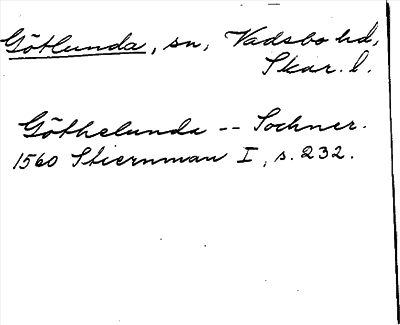 Götlunda, sn, Vadsbo hd,
Skar. l.
Göthelunda -- Sochner.
1560 Stiernman I, s. 232.